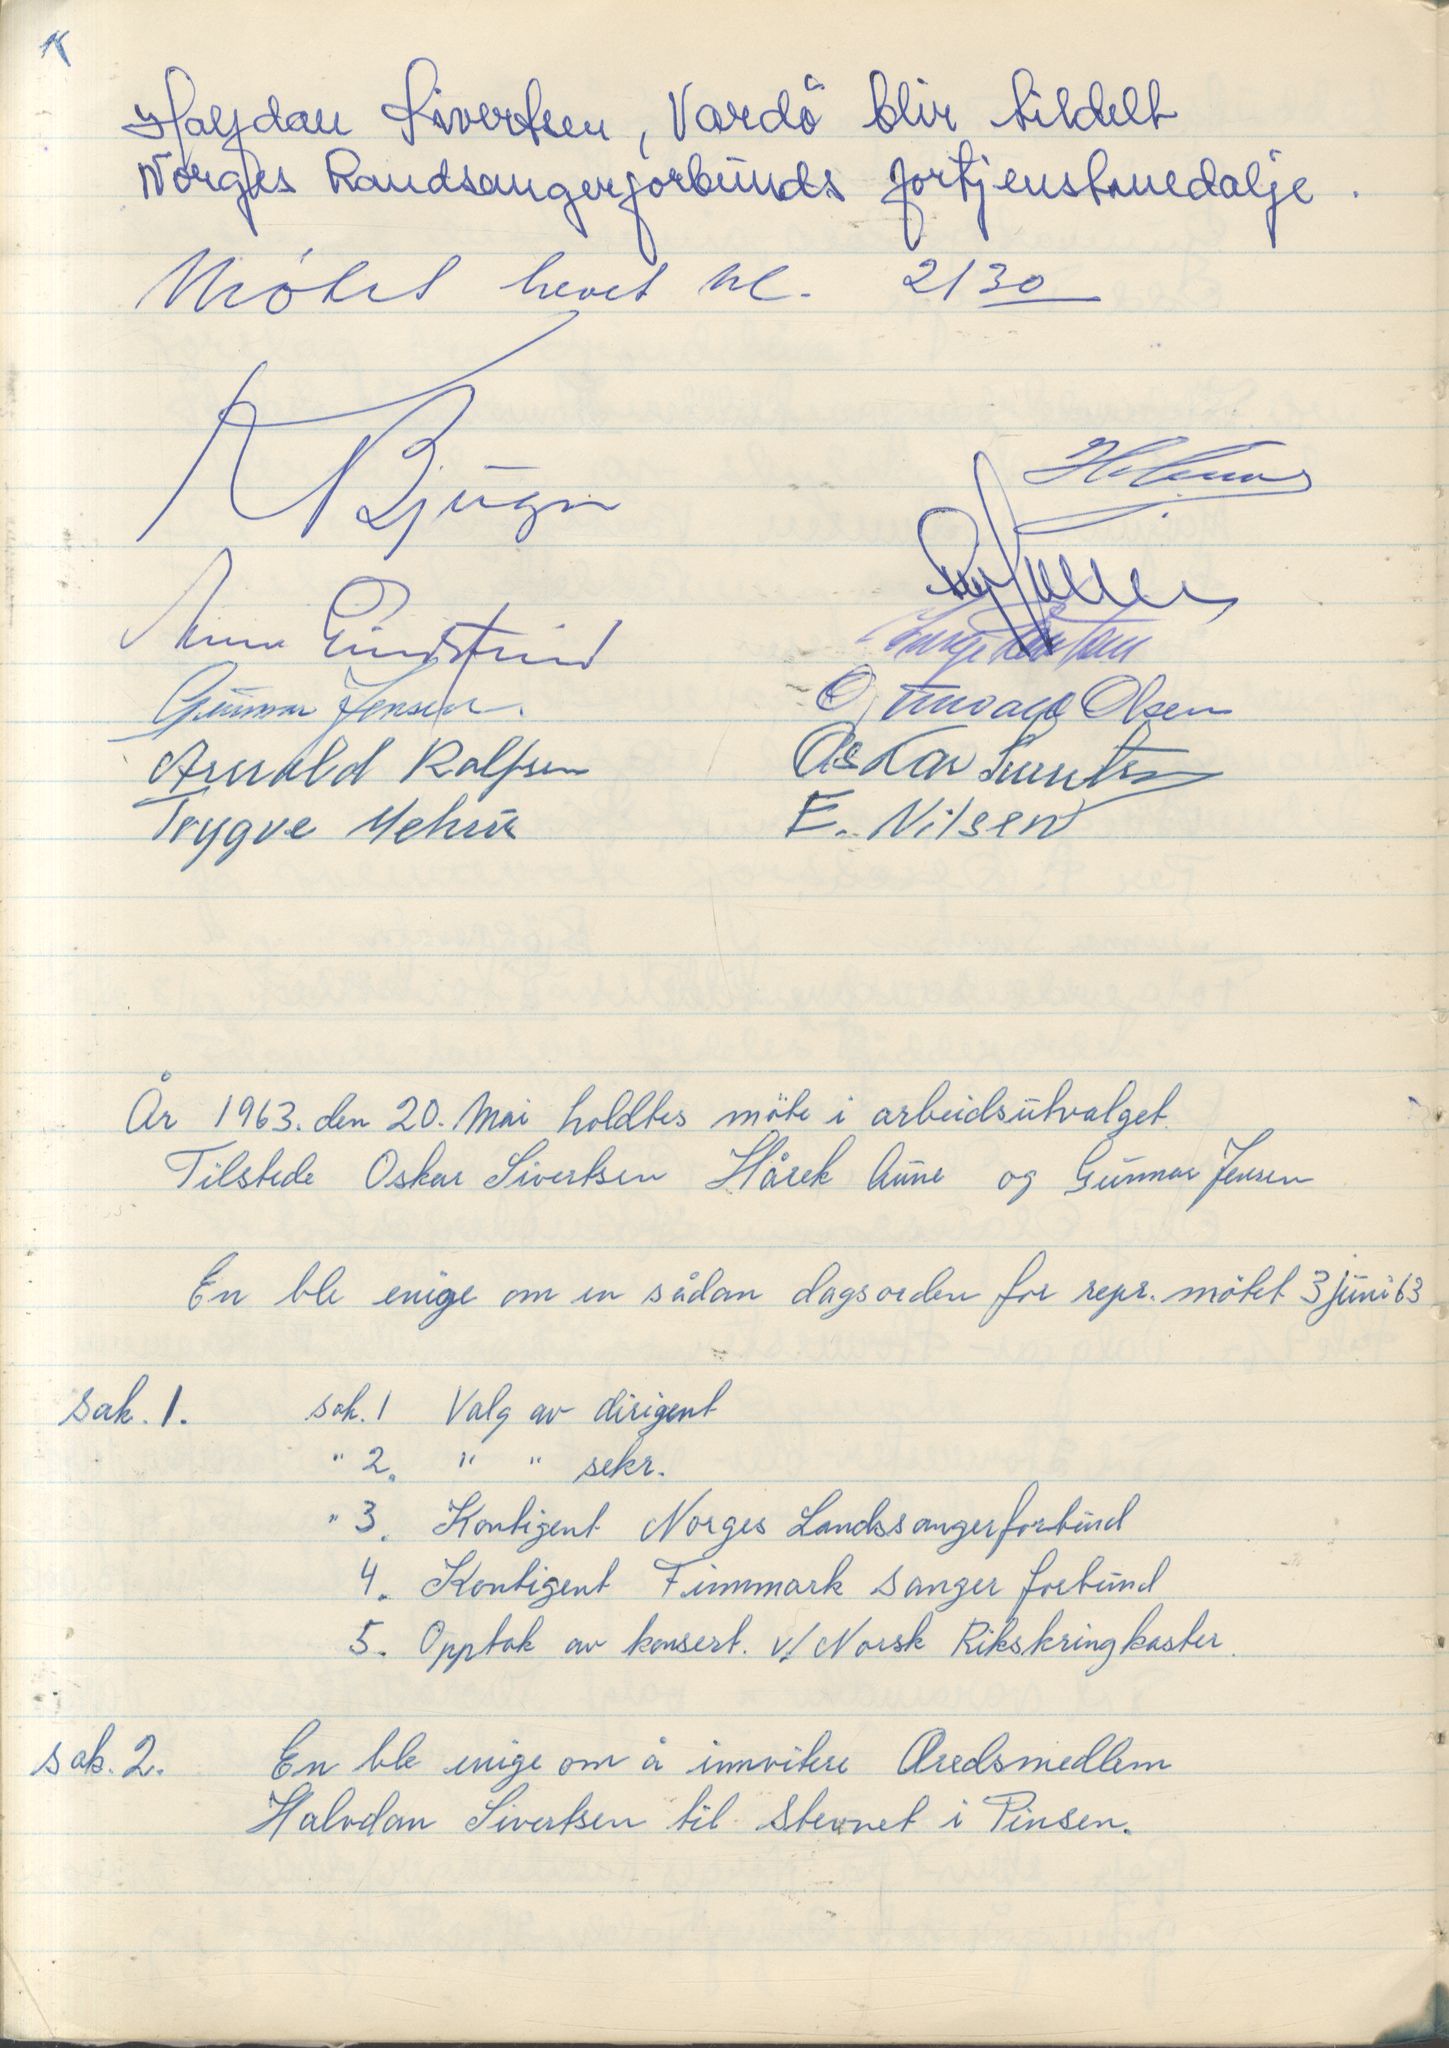 Halfdan Sivertsen, Vardö blir tildelt
Norges Landsangerforbunds fortjenstmedalje.
Møtet hevet kl. 2130
Bjugn
Gunnar Jensen.
Arnold Rolfsen
Trygve
Olsen
Oskar
E. Nilsen
År 1963. den 20. Mai holdtes möte i arbeidsutvalget.
Tilstede Oskar Sivertsen Hårek Aune og Gunnar Jensen
En ble enige om en sådan dagsorden for repr. mötet 3 juni 63
sak. 1. sak. 1 Valg av dirigent
" 2. " " sekr.
" 3. Kontigent Norges Landssangerforbund
4. Kontigent Finnmark sanger forbund
5. Opptak av konsert. v/ Norsk Rikskringkaster.
sak. 2. En ble enige om å innvitere Æredsmedlem
Halvdan Sivertsen til stevnet i Pinsen.